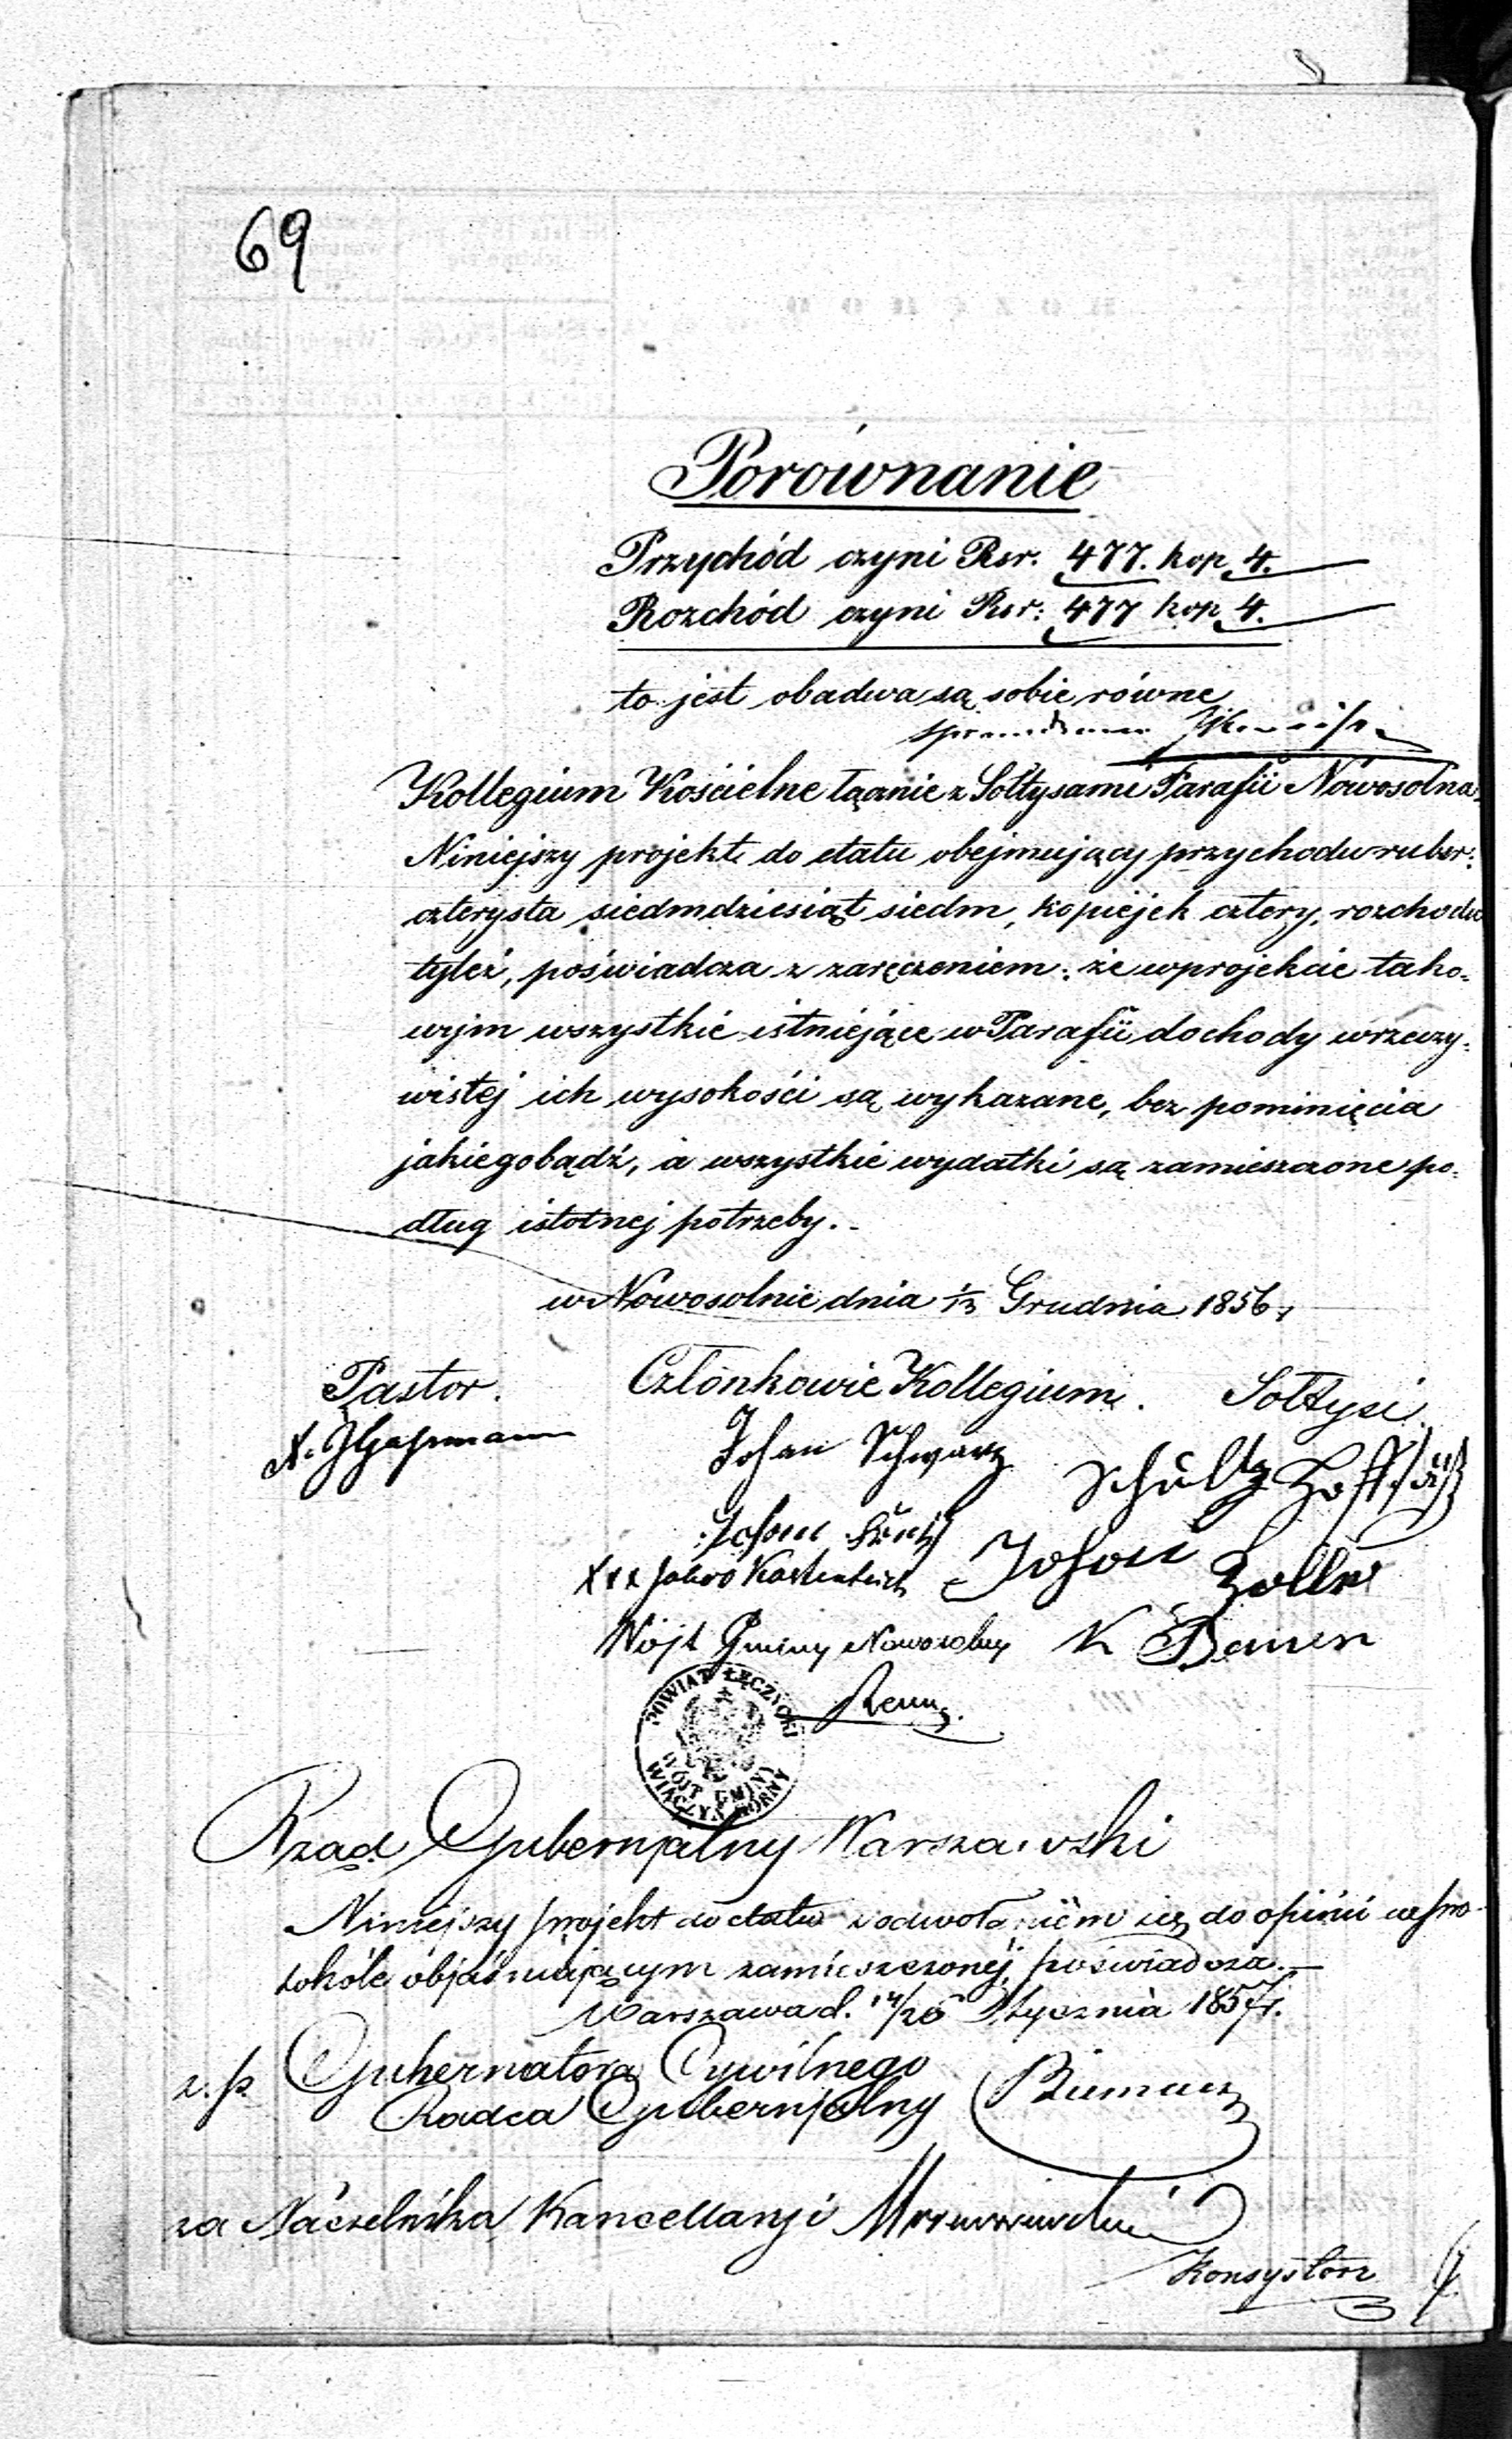 69
Porównanie
Przychód czyni Rsr. 477. kop 4.
Rozchód czyni Rsr: 477 kop 4.
to jest obadwa są sobie równe
Kollegium Kościelne łącznie z Sołtysami Parafii Nowosolna.
Niniejszy projekt do etatu obejmujący przychodu rubsr:
czterysta siedmdziesiąt siedm, kopiejek cztery, rozchodu
tyleż, poświadcza z zaręczeniem: że w projekcie tako-
wym wszystkie istniejące w Parafii dochody w rzeczy-
wistej ich wysokości są wykazane, bez pominięcia
jakiegobądź, a wszystkie wydatki są zamieszczone po-
dług istotnej potrzeby.
w Nowosolnie dnia 1/13 Grudnia 1856 r
Pastor. Członkowie Kollegium. Sołtysi
Johan Schwarz Schultz
Johann
xxx Johan
Wójt Gminy Nowosolny K Bauer
POWIAT ŁĘCZYCKI
WÓJT GMINY
WIĄCZYŃ GÓRNY
Rząd Gubernjalny Warszawski
Niniejszy projekt do etatu z odwołaniem się do opinii w pro-
tokóle objaśniającym zamieszczonej, poświadcza.
Warszawa d. 14/26 Stycznia 1857 r.
z. p. Gubernatora Cywilnego
Radca Gubernjalny
za Naczelnika Kancellaryi
Konsystorz